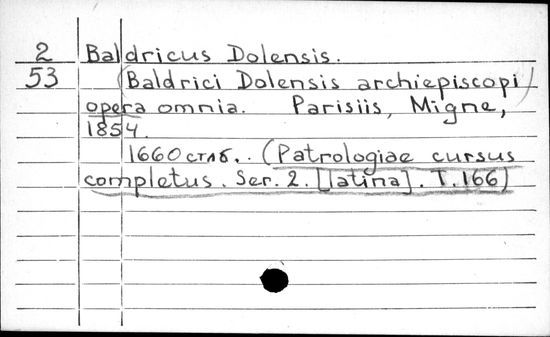 2 Baldricus Dolensis.
53 (Baldrici Dolensis archiepiscopi)
opera omnia. Parisiis, Migne,
1854.
1660 стлб. . (Patrologiae cursus
completus. Ser. 2. [latina]. T. 166)